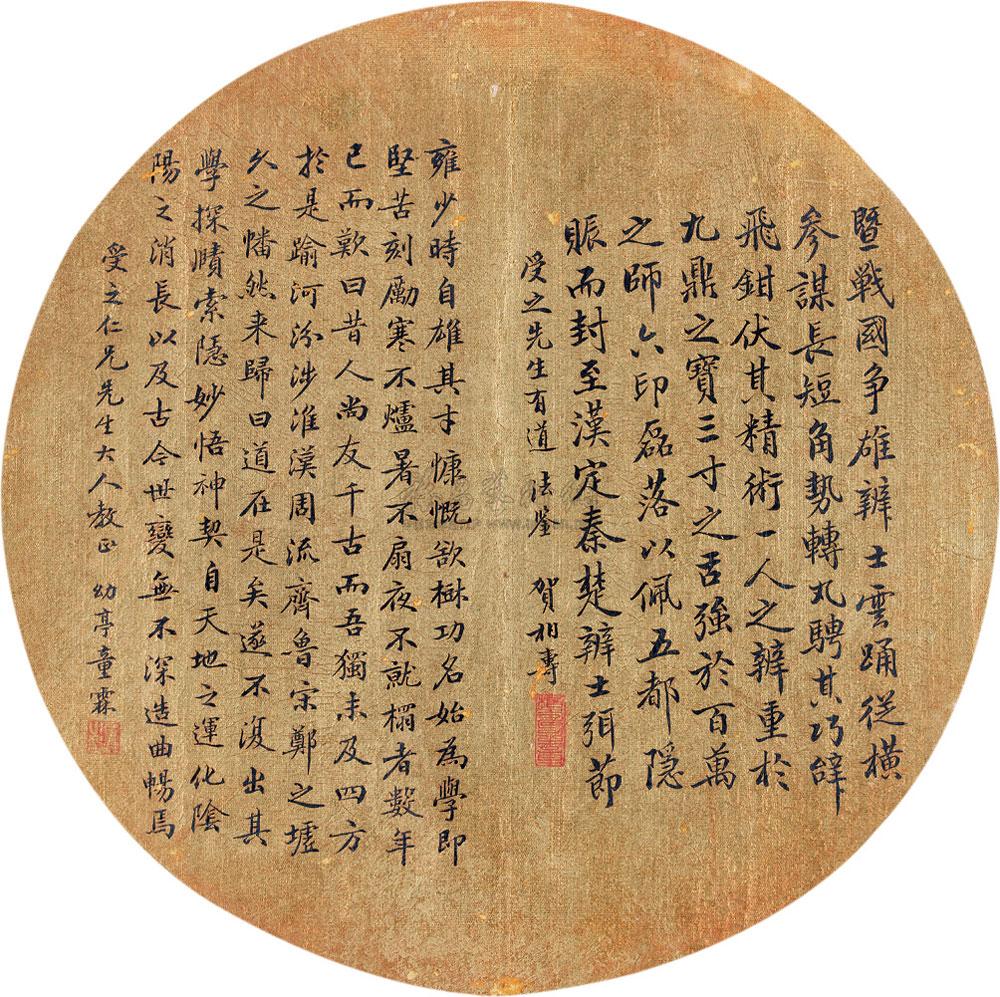 暨戰國争雄辨士雲踊從横
參謀長短角勢轉丸騁其巧辭
飛鉗伏其精術一人之辨重於
九鼎之寶三寸之舌強於百萬
之師六印磊落以佩五都隱
賑而封至漢定秦楚辨士弭節
受之先生有道法鉴 賀相壽
雍少時自雄其才慷慨欲樹功名始為學即
堅苦刻勵寒不爐暑不扇夜不就榻者數年
已而歎曰昔人尚友千古而吾獨未及四方
於是踰河汾涉淮漢周流齊魯宋鄭之墟
久之幡然来歸曰道在是矣遂不復出其
學探賾索隱妙悟神契自天地之運化陰
陽之消長以及古今世變無不深造曲暢焉
受之仁兄先生大人教正 幼亭童霖